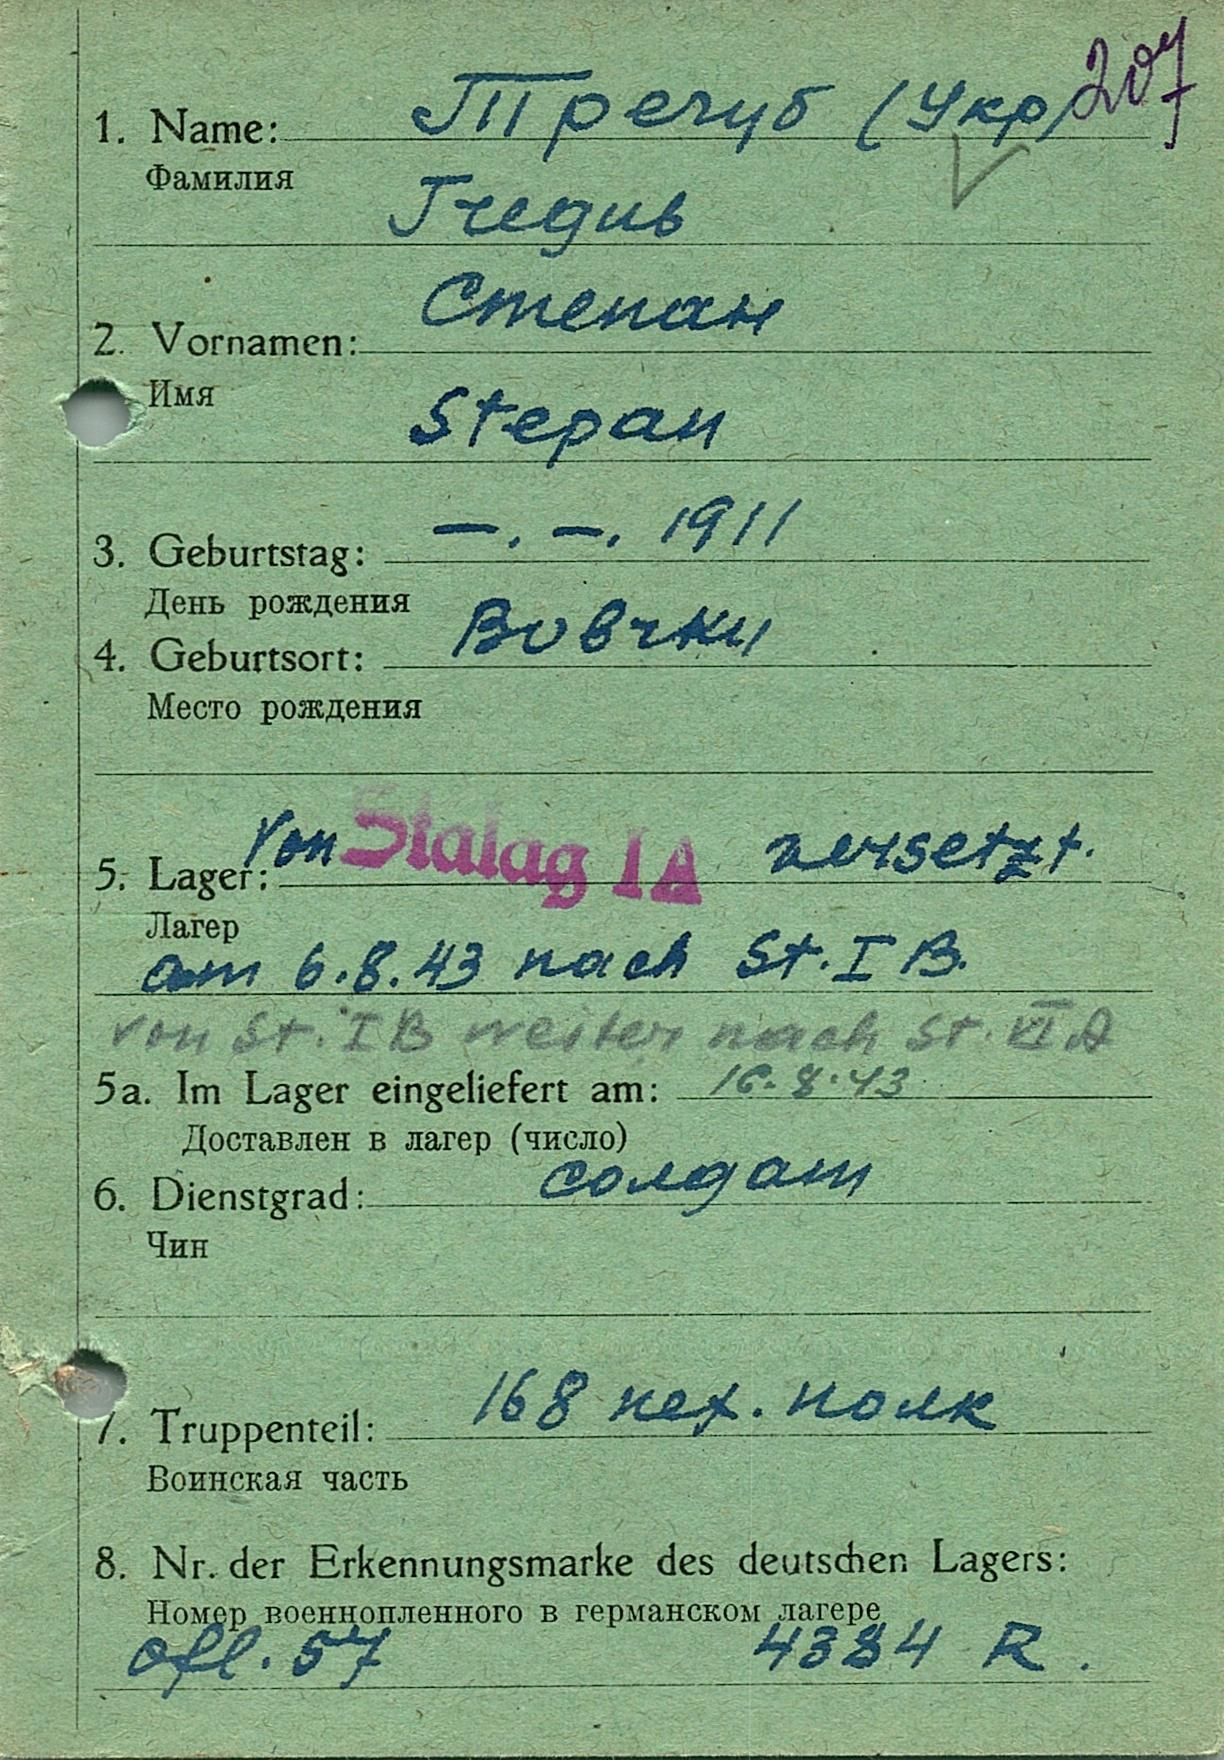 207
1. Name: Тречуб (Укр)
Фамилия
2. Vornamen: Степан
Имя
Stepan
3. Geburtstag: —. —. 1911
День рождения
4. Geburtsort: Вовчки
Место рождения
5. Lager: Von Stalag IA versetzt.
Лагер
am 6.8.43 nach St. I B.
von St. I B weiter nach St. VI A
5a. Im Lager eingeliefert am: 16.8.43
Доставлен в лагер (число)
6. Dienstgrad: солдат
Чин
7. Truppenteil: 168 пех. полк
Воинская часть
8. Nr. der Erkennungsmarke des deutschen Lagers:
Номер военнопленного в германском лагере
Ofl. 57 4384 R.